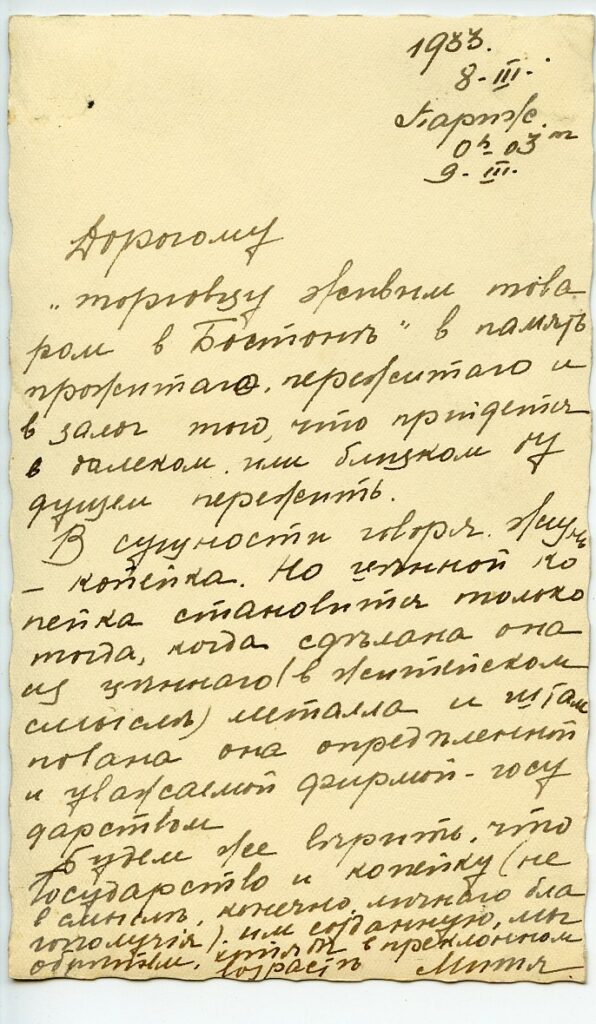 1933.
8 - III.
Париж.
0ʰ 03ᵐ
9 - III.
Дорогому
„торговцу живым това
ром в Бостонѣ" в память
прожитаго, пережитаго и
в залог того, что придется
в далеком или близком бу
дущем пережить.
В сущности говоря жизнь
– копейка. Но цѣнной ко
пейка становится только
тогда, когда сдѣлана она
из цѣннаго (в житейском
смыслѣ) металла и штам
пована она опредѣленной
и уважаемой фирмой - госу
дарством
Будем же вѣрить, что
Государство и копейку (не
в смыслѣ, конечно, личнаго бла
гополучія), им созданную, мы
обрѣтем, хотя б в преклонном
возрастѣ Митя.